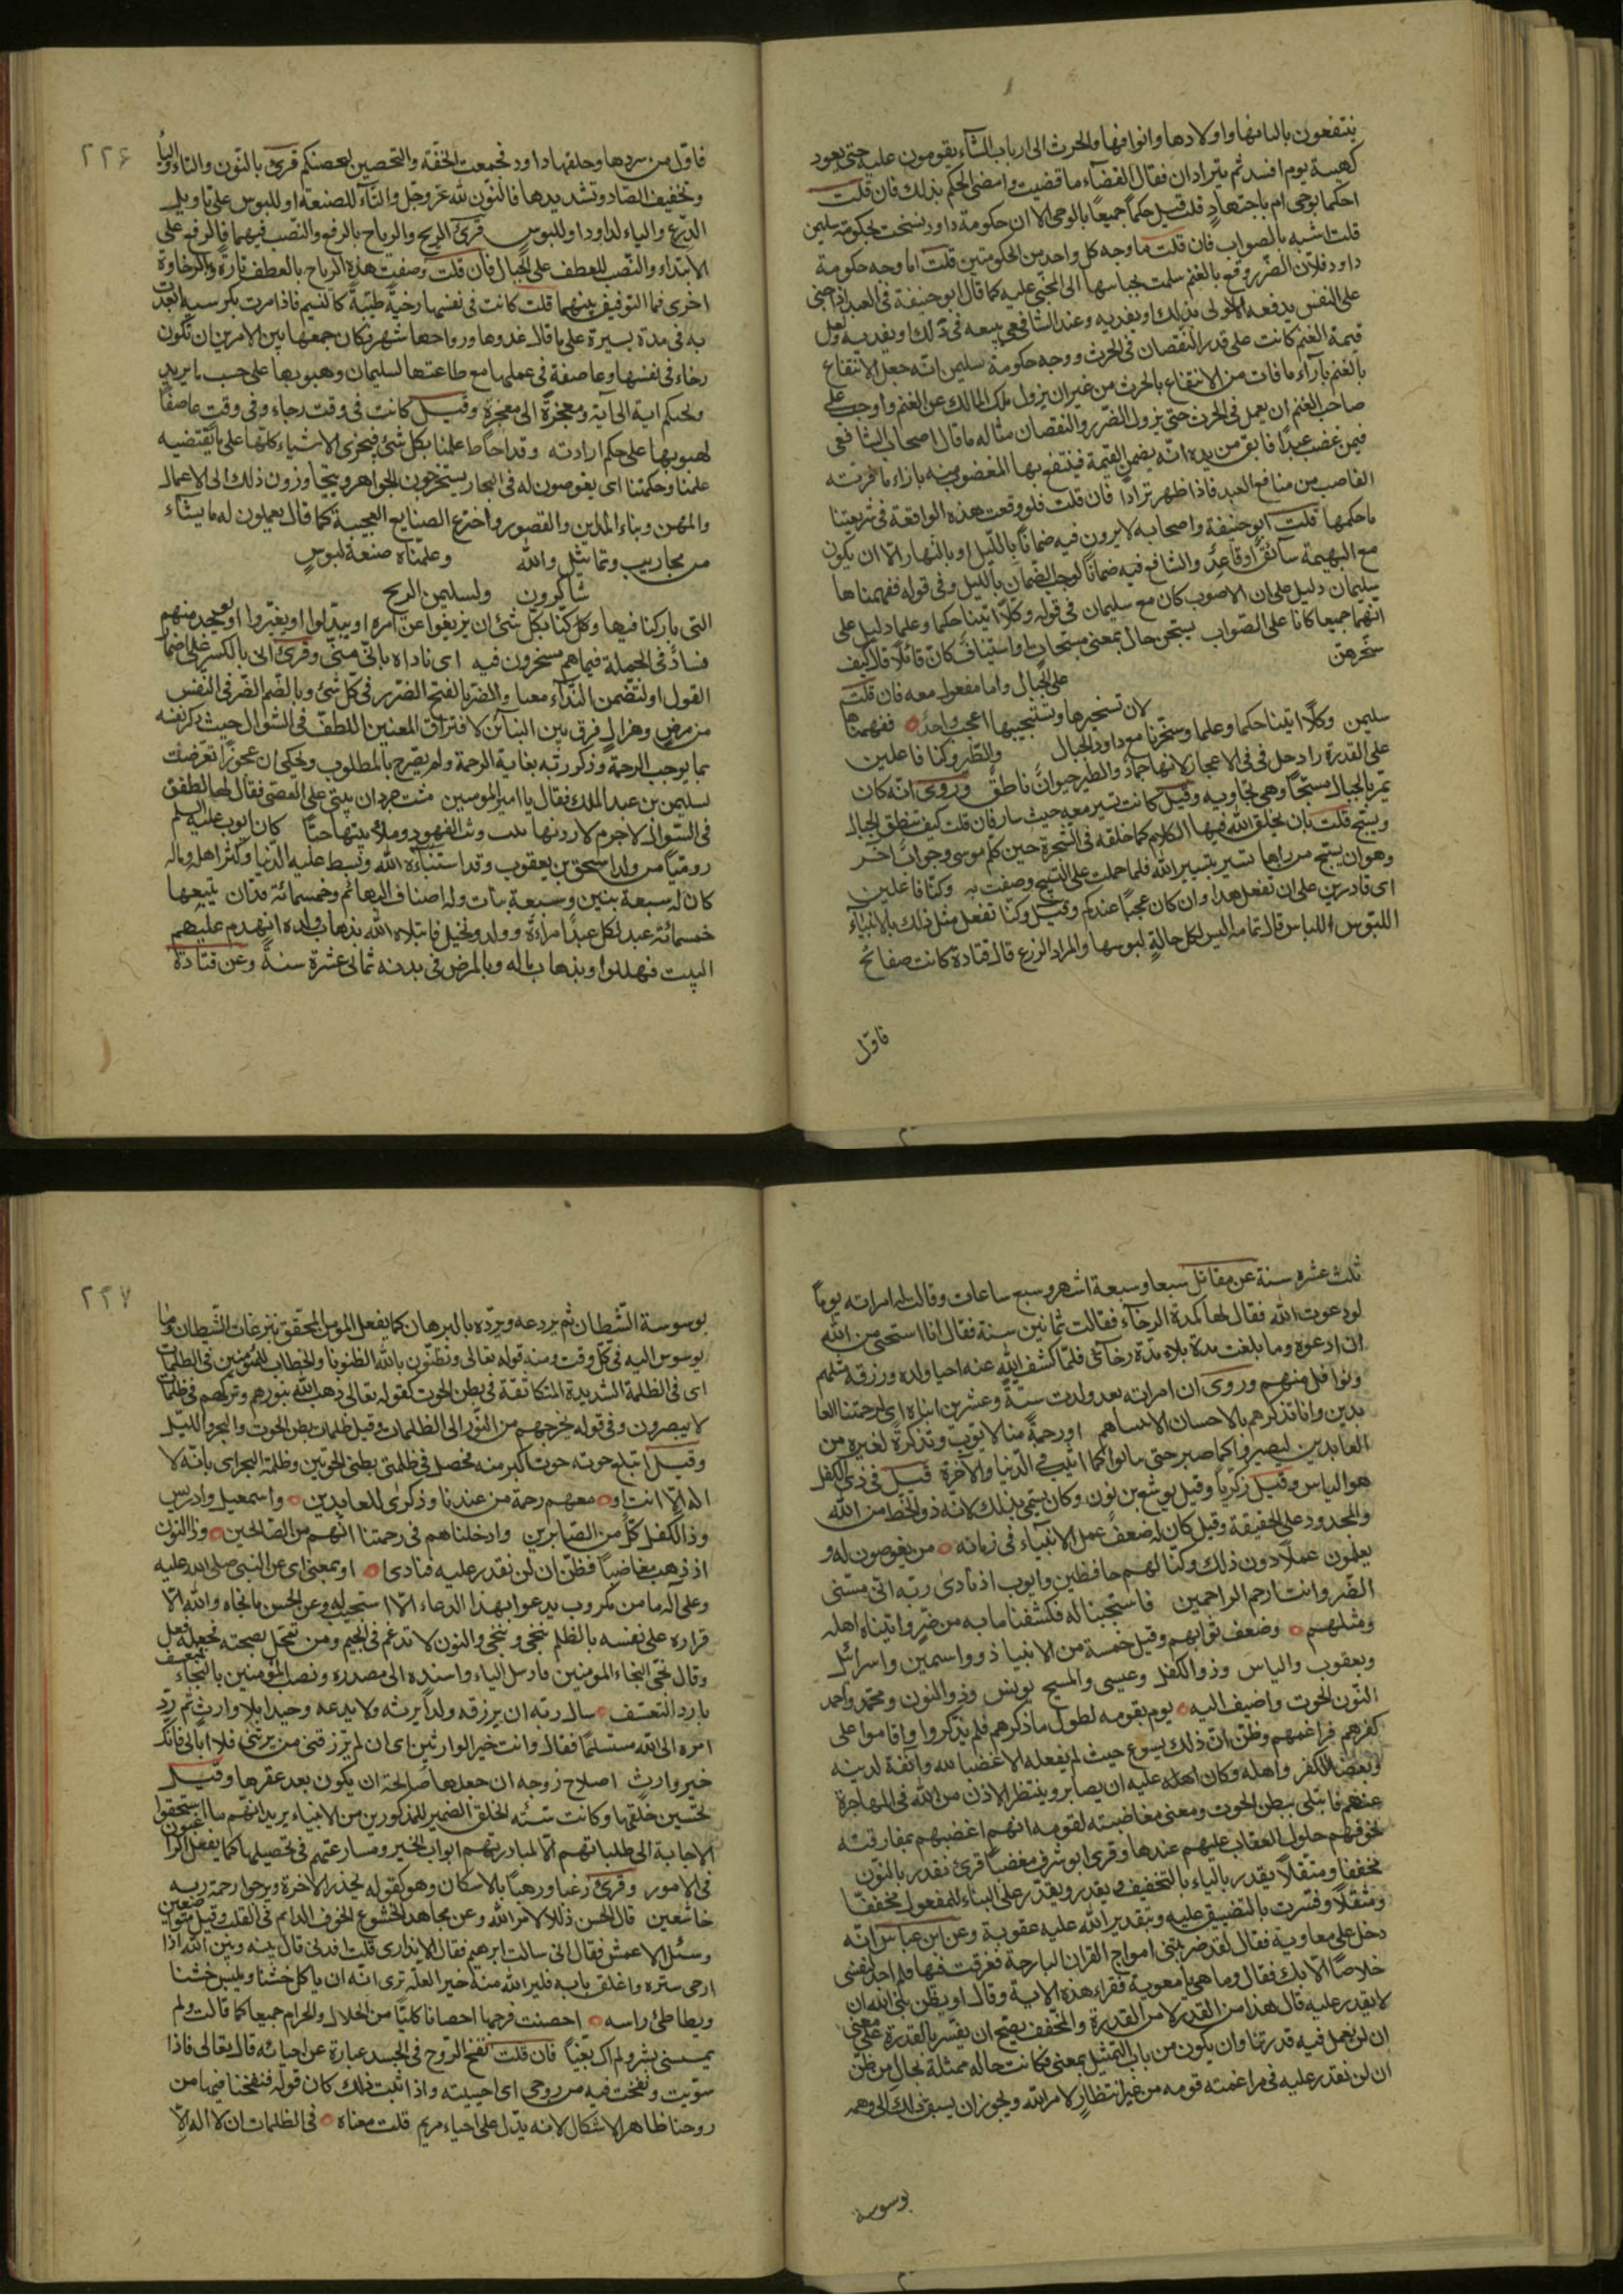 ينتفعون بالبانها واولادها واصوافها والحرث الى ارباب الشآء يقومون عليه حتى يعود
كهيئة يوم افسد ثم يترادان فقال القضآء ما قضيت وامضى الحكم بذلك فان قلت
احكما بوحى ام باجتهادٍ قلت قيل حكما جميعًا بالوحى الا ان حكومة داود نسخت بحكومة سليمن
قلت اشبه بالصواب فان قلت ما وجه كل واحد من الحكومتين قلت اما وجه حكومة
داود فلان الضّرر وقع بالغنم سلمت بجناسها الى المجنى عليه كما قال ابو حنيفة فى العبد اذا جنى
على النفس يدفعه المولى بذلك او يفديه وعند الشافعى يبيعه فى ذلك او يفديه ولعل
قيمة الغنم كانت على قدر النقصان فى الحرث ووجه حكومة سليمن انّه جعل الانتفاع
بالغنم بازآء ما فات من الانتفاع بالحرث من غير ان يزول ملك المالك عن الغنم واوجب على
صاحب الغنم ان يعمل فى الحرث حتى يزول الضّرر والنقصان مثاله ما قال اصحاب الشافعى
فيمن غصب عبدًا فابق من يده انّه يضمن القيمة فينتفع بها المغصوب منه بازاء ما فوّته
الغاصب من منافع العبد فاذا ظهر ترادا فان قلت فلو وقعت هذه الواقعة فى شريعتنا
ما حكمها قلت ابو حنيفة واصحابه لا يرون فيه ضمانًا بالليل او بالنهار الّا ان يكون
مع البهيمة سآئق او قائد والشافع فيه ضمانًا لوجوب الضمان بالليل وفى قوله ففهمناها
سليمان دليل على ان الاصوب كان مع سليمان فى قوله وكلًّا اتينا حكما وعلما دليل على
انّهما جميعا كانا على الصّواب يسبّحن حال بمعنى مسبّحات او استيناف كان قائلا قال كيف
سخرهن
على الجبال واما مفعول معه فان قلت
لان تسخيرها وتسبيحها اعجب واحدُ ففهمناها
سليمن وكلّا اتينا حكما وعلما وسخّرنا مع داود الجبال والطّير وكنا فاعلين
على القدرة وادخل فى الاعجاز لانها جمادُ والطير حيوان ناطقٌ وروى انّه كان
يمرّ بالجبال مسبّحًا وهى تجاوبه وقيل كانت تسير معه حيث سار فان قلت كيف تنطق الجبال
وتسبّح قلت بان يخلق الله فيها الكلام كما خلقه فى الشجرة حين كلم موسى وجوابٌ آخر
وهو ان يسبّح من رآها تسير بتسيير الله فلما حملت على التسبيح وصفت به وكنّا فاعلين
اى قادرين على ان نفعل هذا وان كان عجبًا عندكم وقيل وكنّا نفعل مثل ذلك بالانبيآء
اللبوس اللباس قال تمامه البس لكل حالةٍ لبوسها والمراد الدّرع قال قتادة كانت صفائح
فاوّل
٢٢۶
فاوّل من سردها وحلقها داود فجمعت الخفّة والتحصين لتحصنكم قرئ بالنّون والتاء والياء
وتخفيف الصّاد وتشديدها فالنّون لله عزّ وجل والتّآء للصنعة او للبوس على تاويل
الدّرع والياء لداود او للبوس قرئ الريح والرياح بالرفع والنّصب فيهما فالرفع على
الابتداء والنّصب للعطف على الجبال فان قلت وصفت هذه الرياح بالعطف تارةً وبالرخاوة
اخرى فما التوفيق بينهما قلت كانت فى نفسها رخيّةً طيّبةً كالنسيم فاذا مرت بكرسيه ابعدت
به فى مدة يسيرة على ما قال غدوها شهر ورواحها شهر وكان جمعها بين الامرين ان تكون
رخاء فى نفسها وعاصفة فى عملها مع طاعتها لسليمان وهبوبها على حسب ما يريد
ولحكم اية الى آية ومعجزةً الى معجزة وقيل كانت فى وقت رخاء وفى وقت عاصفًا
لهبوبها على حكم ارادته وقد احاط علمنا بكل شئ فنجرى الاشياء كلّها على ما يقتضيه
علمنا وحكمتنا اى يغوصون له فى البحار يستخرجون الجواهر ويتجاوزون ذلك الى الاعمال
والمهن وبناء المداين والقصور واختراع الصنايع العجيبة كما قال يعملون له ما يشاء
من محاريب وتماثيل والله وعلّمناه صنعة لبوسٍ
شاكرون ولسليمن الريح
التى باركنا فيها وكل كنّا بكّل شئ ان يزيغوا عن امره او يبدّلوا او يغيّروا او يوجد منهم
فسادٌ فى الجملة فيما هم مسخرون فيه اى ناداه بانّى مسّنى وقرئ انّى بالكسر على اضمار
القول او لتضّمن النّدآء معناه والضرّ بالفتح الضّرر فى كلّ شئ وبالضّم الضّر فى النّفس
من مرضٍ وهزالٍ فرق بين البنآئين لافتراق المعنيين اللطفّ فى السّوال حيث ذكر نفسه
بما يوجب الرحمة وذكر ربّه بغاية الرحمة ولم يصّرح بالمطلوب ويحكى ان عجوزًا تعرضت
لسليمن بن عبد الملك فقال يا امير المومنين مشت جرذان بيتى على العصى فقال لها الطفت
فى السّوال لا جرم لاردنها تثب وثب الفهود وملأ بيتها حبًّا كان ايوب عليه السلم
روميّا من ولد اسحق بن يعقوب وقد استنباءه الله وبسط عليه الدّنيا وكثر اهله وماله
كان له سبعة بنين وسبعة بنات وله اصناف البهائم وخمسمائة فدّان يتبعها
خمسمائة عبدٍ لكل عبدٍ امراءة وولد ونخيل فابتلاه الله بذهاب ولده انهدم عليهم
البيت فهلكوا وبذهاب ماله وبالمرض فى بدنه ثمانى عشرة سنةً وعن قتادة
ثلث عشره سنة عن مقاتل سبعا وسبعة اشهر وسبع ساعات وقالت له امراته يومًا
لو دعوت الله فقال لها كم مدة الرخآء فقالت ثمانين سنة فقال انا استحى من الله
ان ادعوه وما بلغت مدة بلائى مدّة رخآئى فلمّا كشف الله عنه احيا ولده ورزقه مثلهم
ونوافل منهم وروى ان امراته بعد ولدت ستّةً وعشرين ابناه اى لرحمتنا العا
بدين وانا نذكرهم بالاحسان لا ننساهم او رحمةً منا لايّوبٌ وتذكرةً لغيره من
العابدين ليصبروا كما صبر حتى يثابوا كما اثيب فى الدّنيا والآخرة قيل فى ذى الكفل
هو الياس وقيل زكريّا وقيل يوشع بن نون وكان سمّى بذلك لانه ذو الحّظ من الله
والمجدود على الحقيقة وقيل كان له ضعفُ عمل الانبياء فى زمانه من يغوصون له و
يعلمون عملًا دون ذلك وكنّا لهم حافظين وايوب اذ نادى ربّه انّى مسّنى
الضّر وانت ارحم الراحمين فاستجبنا له فكشفنا ما به من ضّرٍ واتيناه اهله
ومثلهم وضعف ثوابهم وقيل خمسة من الانبيا ذوو اسمين واسرائل
ويعقوب والياس وذو الكفل وعيسى والمسيح يونس وذو النون ومحمّد واحمد
النّون الحوت واضيف اليه يوم بقومه لطول ما ذكرهم فلم يذكّروا واقاموا على
كفرهم فراغمهم وظنّ انّ ذلك يسوغ حيث لم يفعله الا غضبا لله وآنفة لدينه
وبغضًا للكفر واهله وكان اهله عليه ان يصابر وينتظر الاذن من الله فى المهاجرة
عنهم فابتلى ببطن الحوت ومعنى مغاضبته لقومه انهم اغضبهم بمفارقته
لخوفهم حلول العقاب عليهم عندها وقرئ ابو شرف مغضبًا قرئ نقدر بالنّون
مخففا ومثقلًا يقدر بالياء بالتخفيف ويقدر ويقدّر على البناء للمفعول مخففًا
ومثقّلًا وفسّرت بالتضييق عليه وبتقدير الله عليه عقوبة وعن ابن عباس انّه
دخل على معاوية فقال لقد ضربتنى امواج القران البارحة فغرقت فيها فلم اجد لنفسى
خلاصًا الّا بك فقال وما هى يا معوية فقراء هذه الاية وقال او يظن نبّى الله ان
لا يقدر عليه قال هذا من القدر لا من القدرة والمخّفف يصّح ان يفسّر بالقدرة على معنى
ان لن نعمل فيه قدرتنا وان يكون من باب التمثيل بمعنى فكانت حاله ممثلة بحال من ظّن
ان لن نقدر عليه فى مراغمته قومه من غير انتظارٍ لامر الله ويجوز ان يسبق ذلك الى وهمه
بوسوسة
٢٢٧
بوسوسة الشّطان ثم يردعه ويردّه بالبرهان كما يفعل المومن المحقق بنزغات الشّيطان وما
يوسوس اليه فى كلّ وقت ومنه قوله تعالى وتظنّون بالله الظنونا والخطاب للمؤمنين فى الظلمات
اى فى الظلمة الشديدة المتكاثفة فى بطن الحوت كقوله تعالى ذهب الله بنورهم وتركهم فى ظلمات
لا يبصرون وفى قوله يخرجهم من النّور الى الظلمات وقيل ظلمات بطن الحوت والبحر والليّل
وقيل ابتلع حوته حوت اكبر منه فحصل فى ظلمتى بطنى الحوتين وظلمة البحر اى بانّه لا
اله الّا انت او معهم رحمة من عندنا وذكرى للعابدين واسمعيل وادريس
وذا الكفل كلّ من الصّابرين وادخلناهم فى رحمتنا انّهم من الصّالحين وذا النون
اذ ذهب مغاضبًا فظنّ ان لن نقدر عليه فنادى او بمعنى اى عن النبى صلى الله عليه
وعلى آله ما من مكروب يدعوا بهذا الدعاء الّا استجيب له وعن الحسن ما نجاه والله الّا
قراره على نفسه بالظلم ننجى وننّجى والنون لا تدغم فى الجيم ومن تمحّل لصحته فجعله فعل
وقال نجّى النجاء المومنين فارسل الياء واسنده الى مصدره ونصب المؤمنين بالنجاء فمتعسف
بارد التعسّف سال ربّه ان يرزقه ولداً يرثه ولا يدعه وحيدا بلا وارثٍ ثم ردّ
امره الى الله مستسلمًا فقال وانت خير الوارثين اى ان لم ترزقنى من يرثنى فلا ابالى فانّك
خير وارثٍ اصلاح زوجه ان جعلها صالحة ان يكون بعد عقرها وقيل
تحسين خلقها وكانت سّيئة الخلق الضمير للمذكورين من الانبياء يريد انهم ما استحقوا
الاجابة الى طلباتهم الّا لمبادرتهم ابواب الخير ومسارعتهم فى تحصيلها كما يفعل الراغبون
فى الامور وقرئ رغبا ورهبًا بالاسكان وهو كقوله يحذر الاخرة ويرجوا رحمة ربه
خاشعين قال الحسن ذللًا لامر الله وعن مجاهد الخشوع الخوف الدائم فى القلب وقيل متواضعين
وسئل الاعمش فقال انى سالت ابرهيم فقال الا تدارى قلت افدنى قال بينه وبين الله اذا
ارخى ستره واغلق بابه فلير الله منه خيرا لعلّه ترى انّه ان ياكل خشنًا ويلبس خشنا
ويطاطئ راسه احصنت فرجها احصانا كليًّا من الحلال والحرام جميعا كما قالت ولم
يمسسنى بشرٌ ولم اك بغيّاً فان قلت نفخ الرّوح فى الجسد عبارة عن احيائه قال تعالى فاذا
سوّيته ونفخت فيه من روحى اى احييته واذا ثبت ذلك كان قوله فنفخنا فيها من
روحنا ظاهر الاشكال لانه يدّل على احياء مريم قلت معناه فى الظلمات ان لا اله الّا